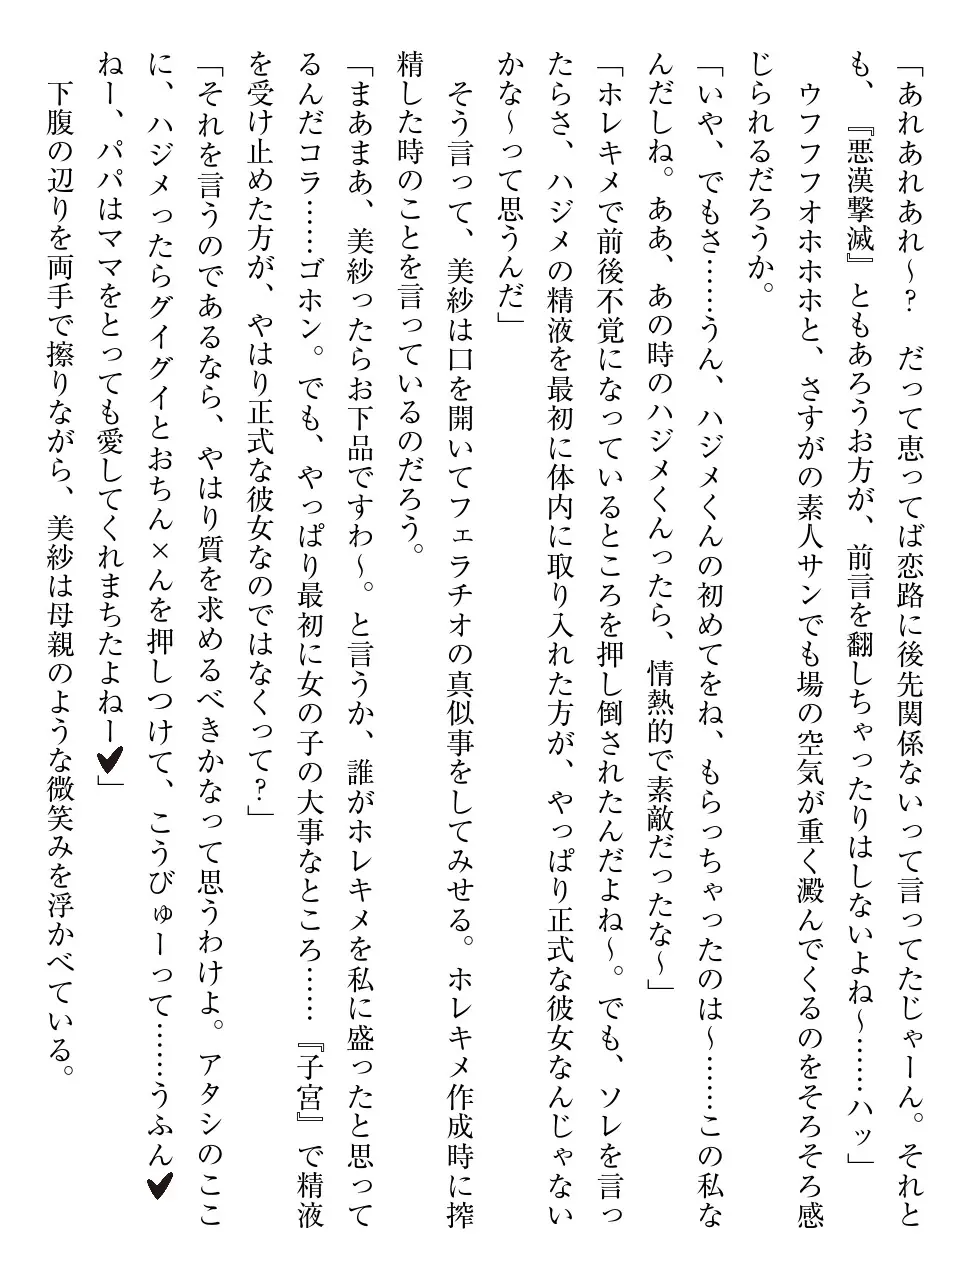 「あれあれあれ～?　だって恵ってば恋路に後先関係ないって言ってたじゃーん。それと
も、『悪漢撃滅』ともあろうお方が、前言を翻しちゃったりはしないよね～……ハッ」
　ウフフフオホホホと、さすがの素人サンでも場の空気が重く澱んでくるのをそろそろ感
じられるだろうか。
「いや、でもさ……うん、ハジメくんの初めてをね、もらっちゃったのは～……この私な
んだしね。ああ、あの時のハジメくんったら、情熱的で素敵だったな～」
「ホレキメで前後不覚になっているところを押し倒されたんだよね～。でも、ソレを言っ
たらさ、ハジメの精液を最初に体内に取り入れた方が、やっぱり正式な彼女なんじゃない
かな～って思うんだ」
　そう言って、美紗は口を開いてフェラチオの真似事をしてみせる。ホレキメ作成時に搾
精した時のことを言っているのだろう。
「まあまあ、美紗ったらお下品ですわ～。と言うか、誰がホレキメを私に盛ったと思って
るんだコラ……ゴホン。でも、やっぱり最初に女の子の大事なところ……『子宮』で精液
を受け止めた方が、やはり正式な彼女なのではなくって?」
「それを言うのであるなら、やはり質を求めるべきかなって思うわけよ。アタシのここ
に、ハジメったらグイグイとおちん×んを押しつけて、こうびゅーって……うふん♥
ねー、パパはママをとっても愛してくれまちたよねー♥」
　下腹の辺りを両手で擦りながら、美紗は母親のような微笑みを浮かべている。